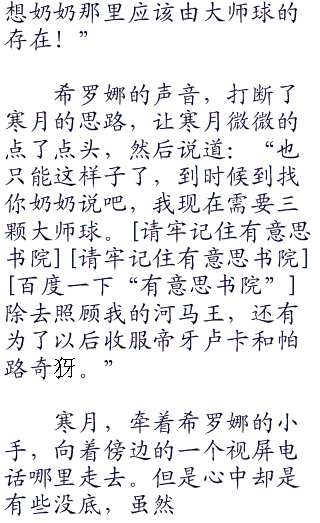 想奶奶那里应该由大师球的
存在！”
希罗娜的声音，打断了
寒月的思路，让寒月微微的
点了点头，然后说道：“也
只能这样子了，到时候到找
你奶奶说吧，我现在需要三
颗大师球。[请牢记住有意思
书院] [请牢记住有意思书院]
[百度一下“有意思书院”]
除去照顾我的河马王，还有
为了以后收服帝牙卢卡和帕
路奇犽。”
寒月，牵着希罗娜的小
手，向着傍边的一个视屏电
话哪里走去。但是心中却是
有些没底，虽然